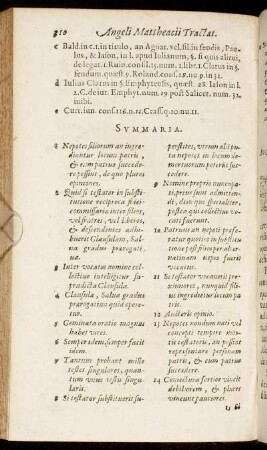 310 Angeli Mattheacii Tractat.
c Bald. in c. 1. in titulo, an Agnat. vel fil. in feudis, Pau-
lus, & Iason, in l. apud Iulianum, §. si quis alicui,
de legat. 1. Ruin. consil. 13. num. 1. libr. 1. Clarus in §.
feudum. quæst. 9. Roland. cons. 18. nu. 9. in 31.
d Iulius Clarus in §. Emphyteusis, quæst. 28. Iason in l.
2. C. de iur. Emphyt. num. 19 post Salicet. num. 32.
inibi.
e Curt. iun. cons. 116. Crass. q. 10. nu. 11.
SVMMARIA.
1 Nepotes filiorum an ingre-
diantur locum patris,
& eum patruis succede-
re possint, de quo plures
opiniones.
2 Quid si testator in substi-
tutione reciproca fidei-
commissaria inter filios,
vel fratres, vel liberos,
& descendentes adhi-
buerit Clausulam, Sal-
ua gradus prarogati-
ua.
3 Inter vocatos nomine col-
lectiuo intelligitur su-
pradicta Clausula.
4 Clausula, Salua gradus
prarogatiua quid opere-
tur.
5 Geminata oratio magnas
habet vires.
6 Semper idem, semper facit
idem.
7 Tantum probant mille
testes singulares, quan-
tum vnus testis singu-
laris.
8 Si testator substituerit su-
perstites, verum aliqui
nepotes in locum de-
mortuorum poterit succe-
dere.
9 Nomine proprio nuncupa-
ti prius sunt admitten-
di, quàm generaliter,
postea qui collectiuè vo-
cati fuerunt.
10 Patruus an nepoti prefe-
ratur quoties in substitu-
tione post semper alter-
natiuam in familia
fuerit vocatus.
11 Si testator vocauerit pro-
ximiores, nunquid filij
vnius ingrediētur locum pa-
tris.
12 Auctoris opinio.
13 Nepotes nondum nati vel
concepti tempore mor-
tis testatoris, an possint
repræsentare personam
patris, & eum patruis
succedere.
14 Coniectura fortior vincit
debiliorem, & plures
vincunt pauciores.
15 Si